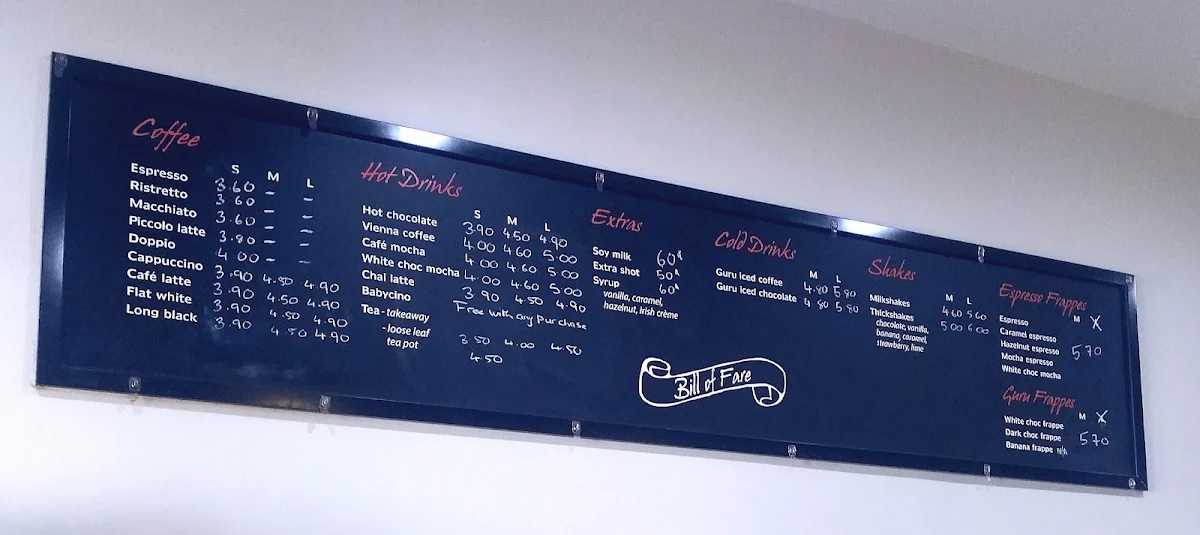 Coffee
S M L
Espresso 3.60 – –
Ristretto 3.60 – –
Macchiato 3.60 – –
Piccolo latte 3.80 – –
Doppio 4.00 – –
Cappuccino 3.90 4.50 4.90
Café latte 3.90 4.50 4.90
Flat white 3.90 4.50 4.90
Long black 3.90 4.50 4.90
Hot Drinks
S M L
Hot chocolate 3.90 4.50 4.90
Vienna coffee 4.00 4.60 5.00
Café mocha 4.00 4.60 5.00
White choc mocha 4.00 4.60 5.00
Chai latte 3.90 4.50 4.90
Babycino Free with any purchase
Tea - takeaway 3.50 4.00 4.50
- loose leaf 4.50
tea pot
Extras
Soy milk 60¢
Extra shot 50¢
Syrup 60¢
vanilla, caramel,
hazelnut, irish crème
Cold Drinks
M L
Guru iced coffee 4.80 5.80
Guru iced chocolate 4.80 5.80
Shakes
M L
Milkshakes 4.60 5.60
Thickshakes 5.00 6.00
chocolate, vanilla,
banana, caramel,
strawberry, lime
Espresso Frappes
M X
Espresso
Caramel espresso
Hazelnut espresso 5.70
Mocha espresso
White choc mocha
Guru Frappes
M X
White choc frappe
Dark choc frappe 5.70
Banana frappe N/A
Bill of Fare